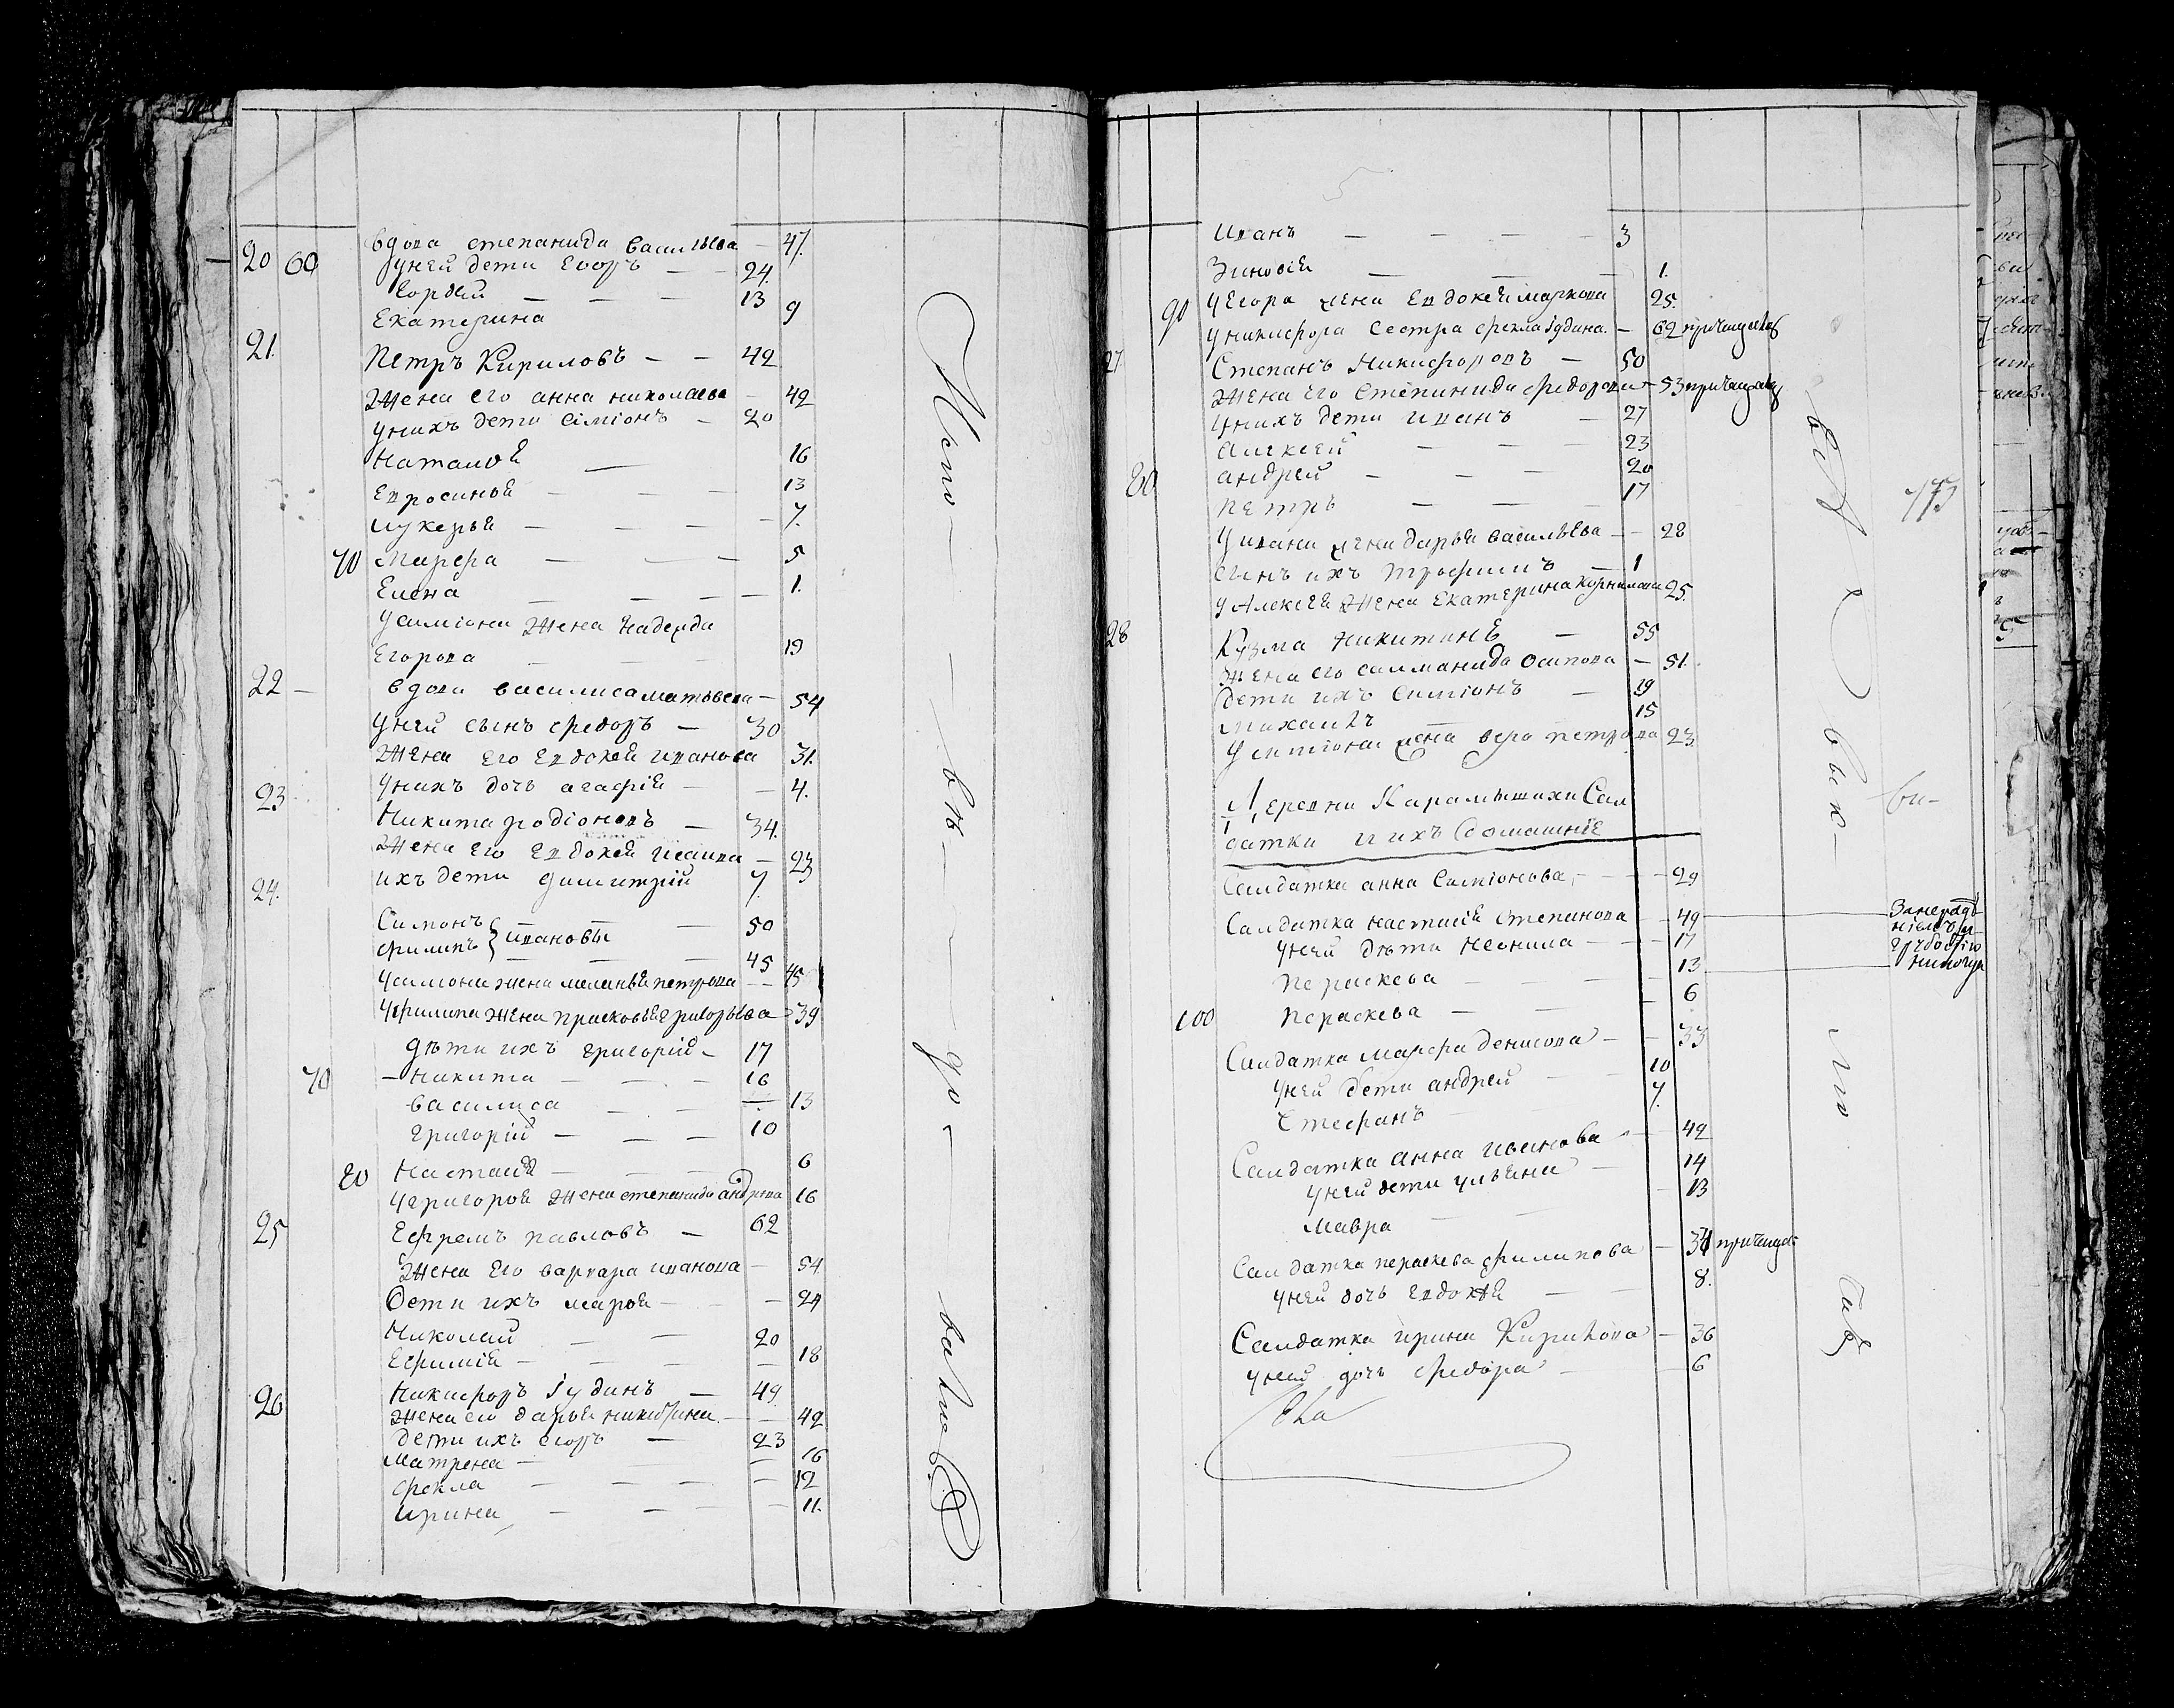 20 60 вдова степанида васильева — 47.
унеи дети Егоръ — — 24.
Гордеи — — — 13
Екатерина 9
21. Петръ Кириловъ — — 42
Жена его анна николаева — 42
унихъ дети Симионъ — 20
Наталиѣ — 16
Евросиньѣ — — — 13
Лукерьѣ — — — 7.
70 Марѳа — — — 5
Елена — — — — 1.
усимиона жена Надежда
Егорова — — — 19
22 — вдова василиса матвеева — 54
унеи сынъ ѳедоръ — 30
Жена его Евдокеѣ иванова 31.
23 унихъ дочь агафиѣ — — 4.
Никита родионовъ — 34.
Жена его Евдокеѣ Исаива — 23
24. ихъ дети димитрий 7.
Симонъ } ивановы — 50
Филипъ — — — 45
усимона жена миланьѣ петрова — — 45
уфилипа жена прасковьѣ григорьева — 39
дѣти ихъ григорий — 17
70 — Никита — — — 16
василиса — — — 13
григорий — — — 10
80 Настасиѣ — — — 6
угригорья жена степанида андреева 16
25 Ефремъ павловъ — 62
Жена Его варвара иванова — 54
Дети ихъ марьѣ — — 24
Николай — — 20
Ефимиѣ — — — — 18
26 Никифоръ Iудинъ — 49.
Жена его дарьѣ никитина. — — 42
дети ихъ егоръ — 23
Матрена — — — 16
ѳекла — — — — 12
Ирина — — — — 11.
Исто — вѣ — до — вание
Иванъ — — — — 3
Зиновиѣ — — — 1.
90 уЕгора жена Евдокеѣ маркова 25.
уникифора сестра ѳекла Iудина. — 62
27. Степанъ Никифоровъ — 50
Жена его Степанида ѳедорова — 53
унихъ дети иванъ — 27
Алексеи — — 23
80 андреи — — — 20
Петръ — — — 17
уивана жена дарьѣ васильева — — 28
сынъ ихъ трофимъ — 1
уАлексеѣ жена Екатерина Корнилова 25.
28 Кузма Никитинъ — 55
Жена его саламанида осипова — 51.
дети ихъ симионъ — 19
михаилъ 15
усимиона жена вера петрова 23
деревни Карамышихи Сал
датки и ихъ домашниѣ
Салдатка анна Симионова, — — — 29
Салдатка настасиѣ степанова — 49
унеи дѣти неонила — — — 17
Параскева — — — 13
100 Параскева — — — 6
Салдатка Марѳа денисова — — 33
унеи дети андреи — — 10
Стефанъ — — 7.
Салдатка анна иванова — — 42
унеи дети ульѣна — 14
Мавра — — — 13
Салдатка параскева филипова — 34
унеи дочь евдокеѣ — — 8.
Салдатка ирина Кирилова — 36
унеи дочь ѳедора — — 6